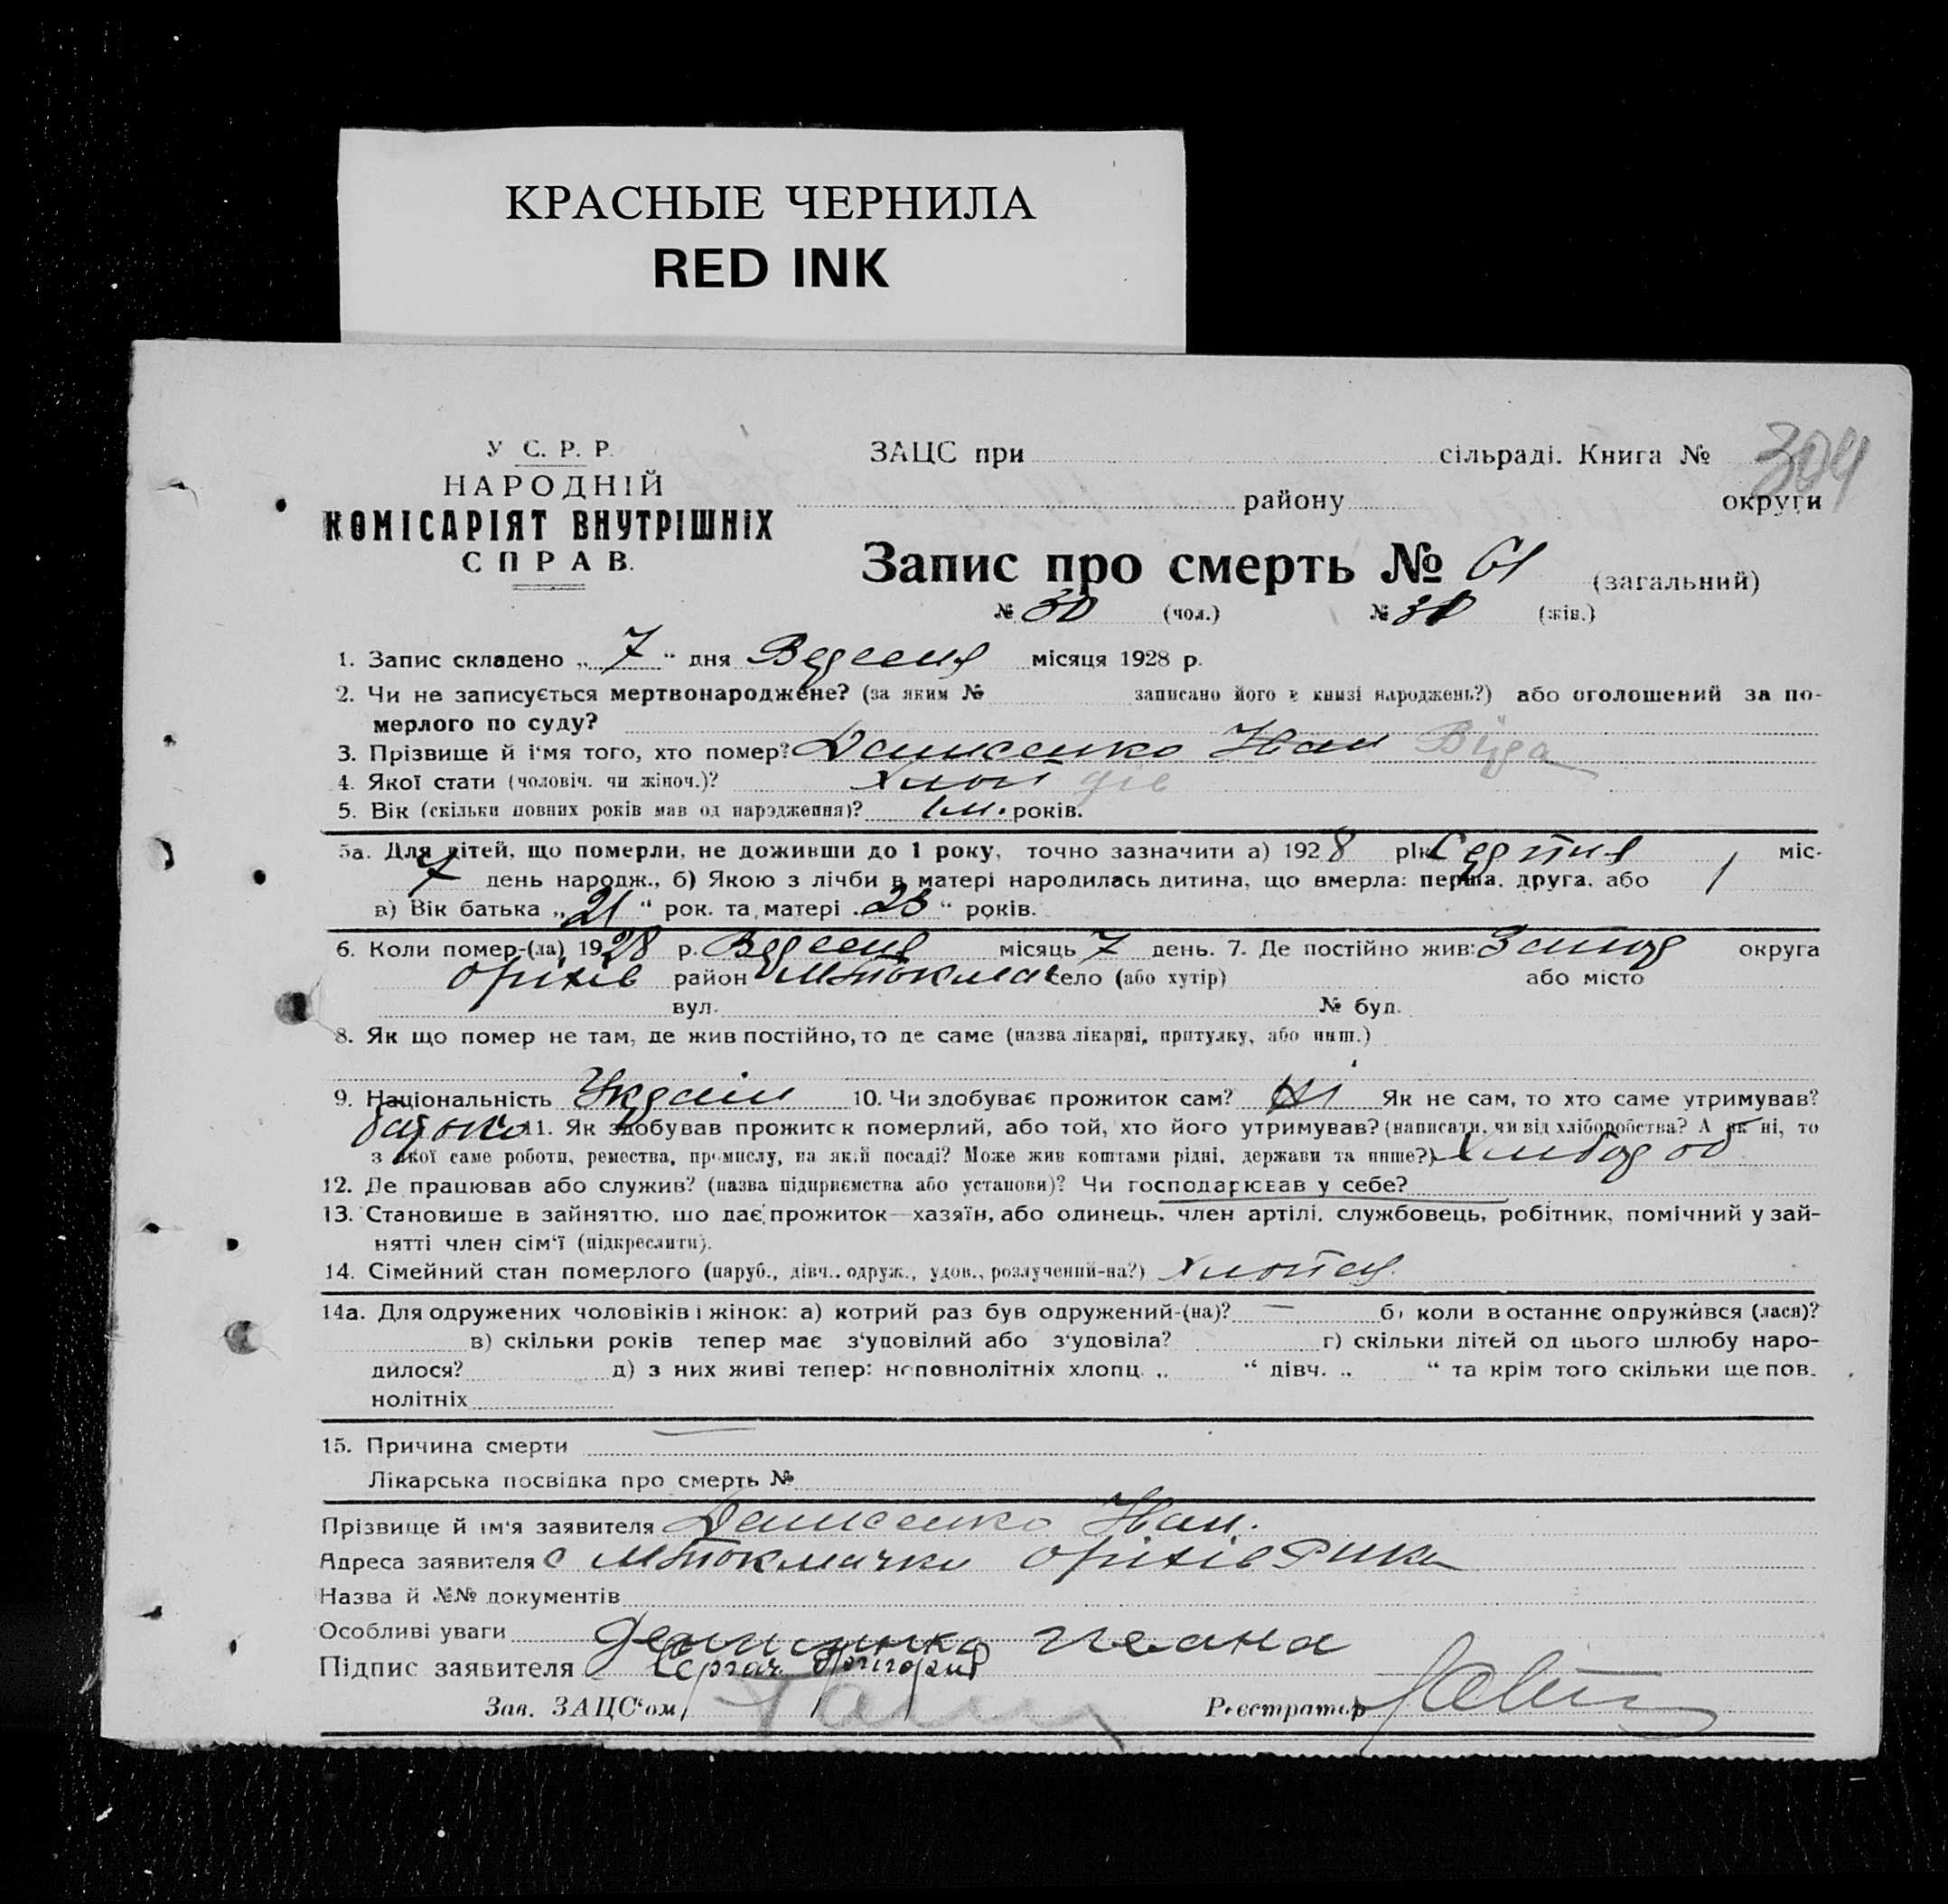 КРАСНЫЕ ЧЕРНИЛА
RED INK
304
У С. Р. Р.
НАРОДНІЙ
КОМІСАРІЯТ ВНУТРІШНІХ
СПРАВ.
ЗАЦС при сільраді. Книга №
району округи
Запис про смерть № 61 (загальний)
№ 30 (чол.) № (жів.)
1. Запис складено „ 7 “ дня Вересня місяця 1928 р.
2. Чи не записується мертвонароджене? (за яким № записано його в книзі народжень?) або оголошений за по-
мерлого по суду?
3. Прізвище й і'мя того, хто помер? Денисенко Іван Віра
4. Якої стати (чоловіч. чи жіноч.)? Хлоп дів
5. Вік (скільки повних років мав од народження)? 1 м. років.
5а. Для дітей, що померли, не доживши до 1 року, точно зазначити а) 1928 рік Серпня міс.
7 день народж., б) Якою з лічби в матері народилась дитина, що вмерла: перша, друга, або 1
в) Вік батька „ 21 “ рок. та матері „ 23 “ років.
6. Коли помер-(ла) 1928 р. Вересня місяць 7 день. 7. Де постійно жив: Запор округа
Оріхів район МТокмач село (або хутір) або місто
вул. № буд.
8. Як що помер не там, де жив постійно, то де саме (назва лікарні, притулку, або инш.)
9. Національність Україн 10. Чи здобуває прожиток сам? Ні Як не сам, то хто саме утримував?
батько 11. Як здобував прожиток померлий, або той, хто його утримував? (написати, чи від хліборобства? А як ні, то
з якої саме роботи, ремества, промислу, на якій посаді? Може жив коштами рідні, держави та инше?) Хлібороб
12. Де працював або служив? (назва підприємства або установи)? Чи господарював у себе?
13. Становище в зайняттю, що дає прожиток—хазяїн, або одинець, член артілі, службовець, робітник, помічний у зай-
нятті член сім'ї (підкреслити).
14. Сімейний стан померлого (паруб., дівч., одруж., удов., розлучений-на?) Хлопец
14а. Для одружених чоловіків і жінок: а) котрий раз був одружений-(на)? — б) коли востаннє одружився (лася)?
в) скільки років тепер має з'удовілий або з'удовіла? г) скільки дітей од цього шлюбу наро-
дилося? д) з них живі тепер: неповнолітніх хлопц. „ “ дівч. „ “ та крім того скільки ще пов.
нолітніх
15. Причина смерти —
Лікарська посвідка про смерть №
Прізвище й ім'я заявителя Денисенко Іван.
Адреса заявителя с МТокмачки Оріхів Р-на
Назва й №№ документів
Особливі уваги
Підпис заявителя
Зав. ЗАЦС'ом Реєстратор